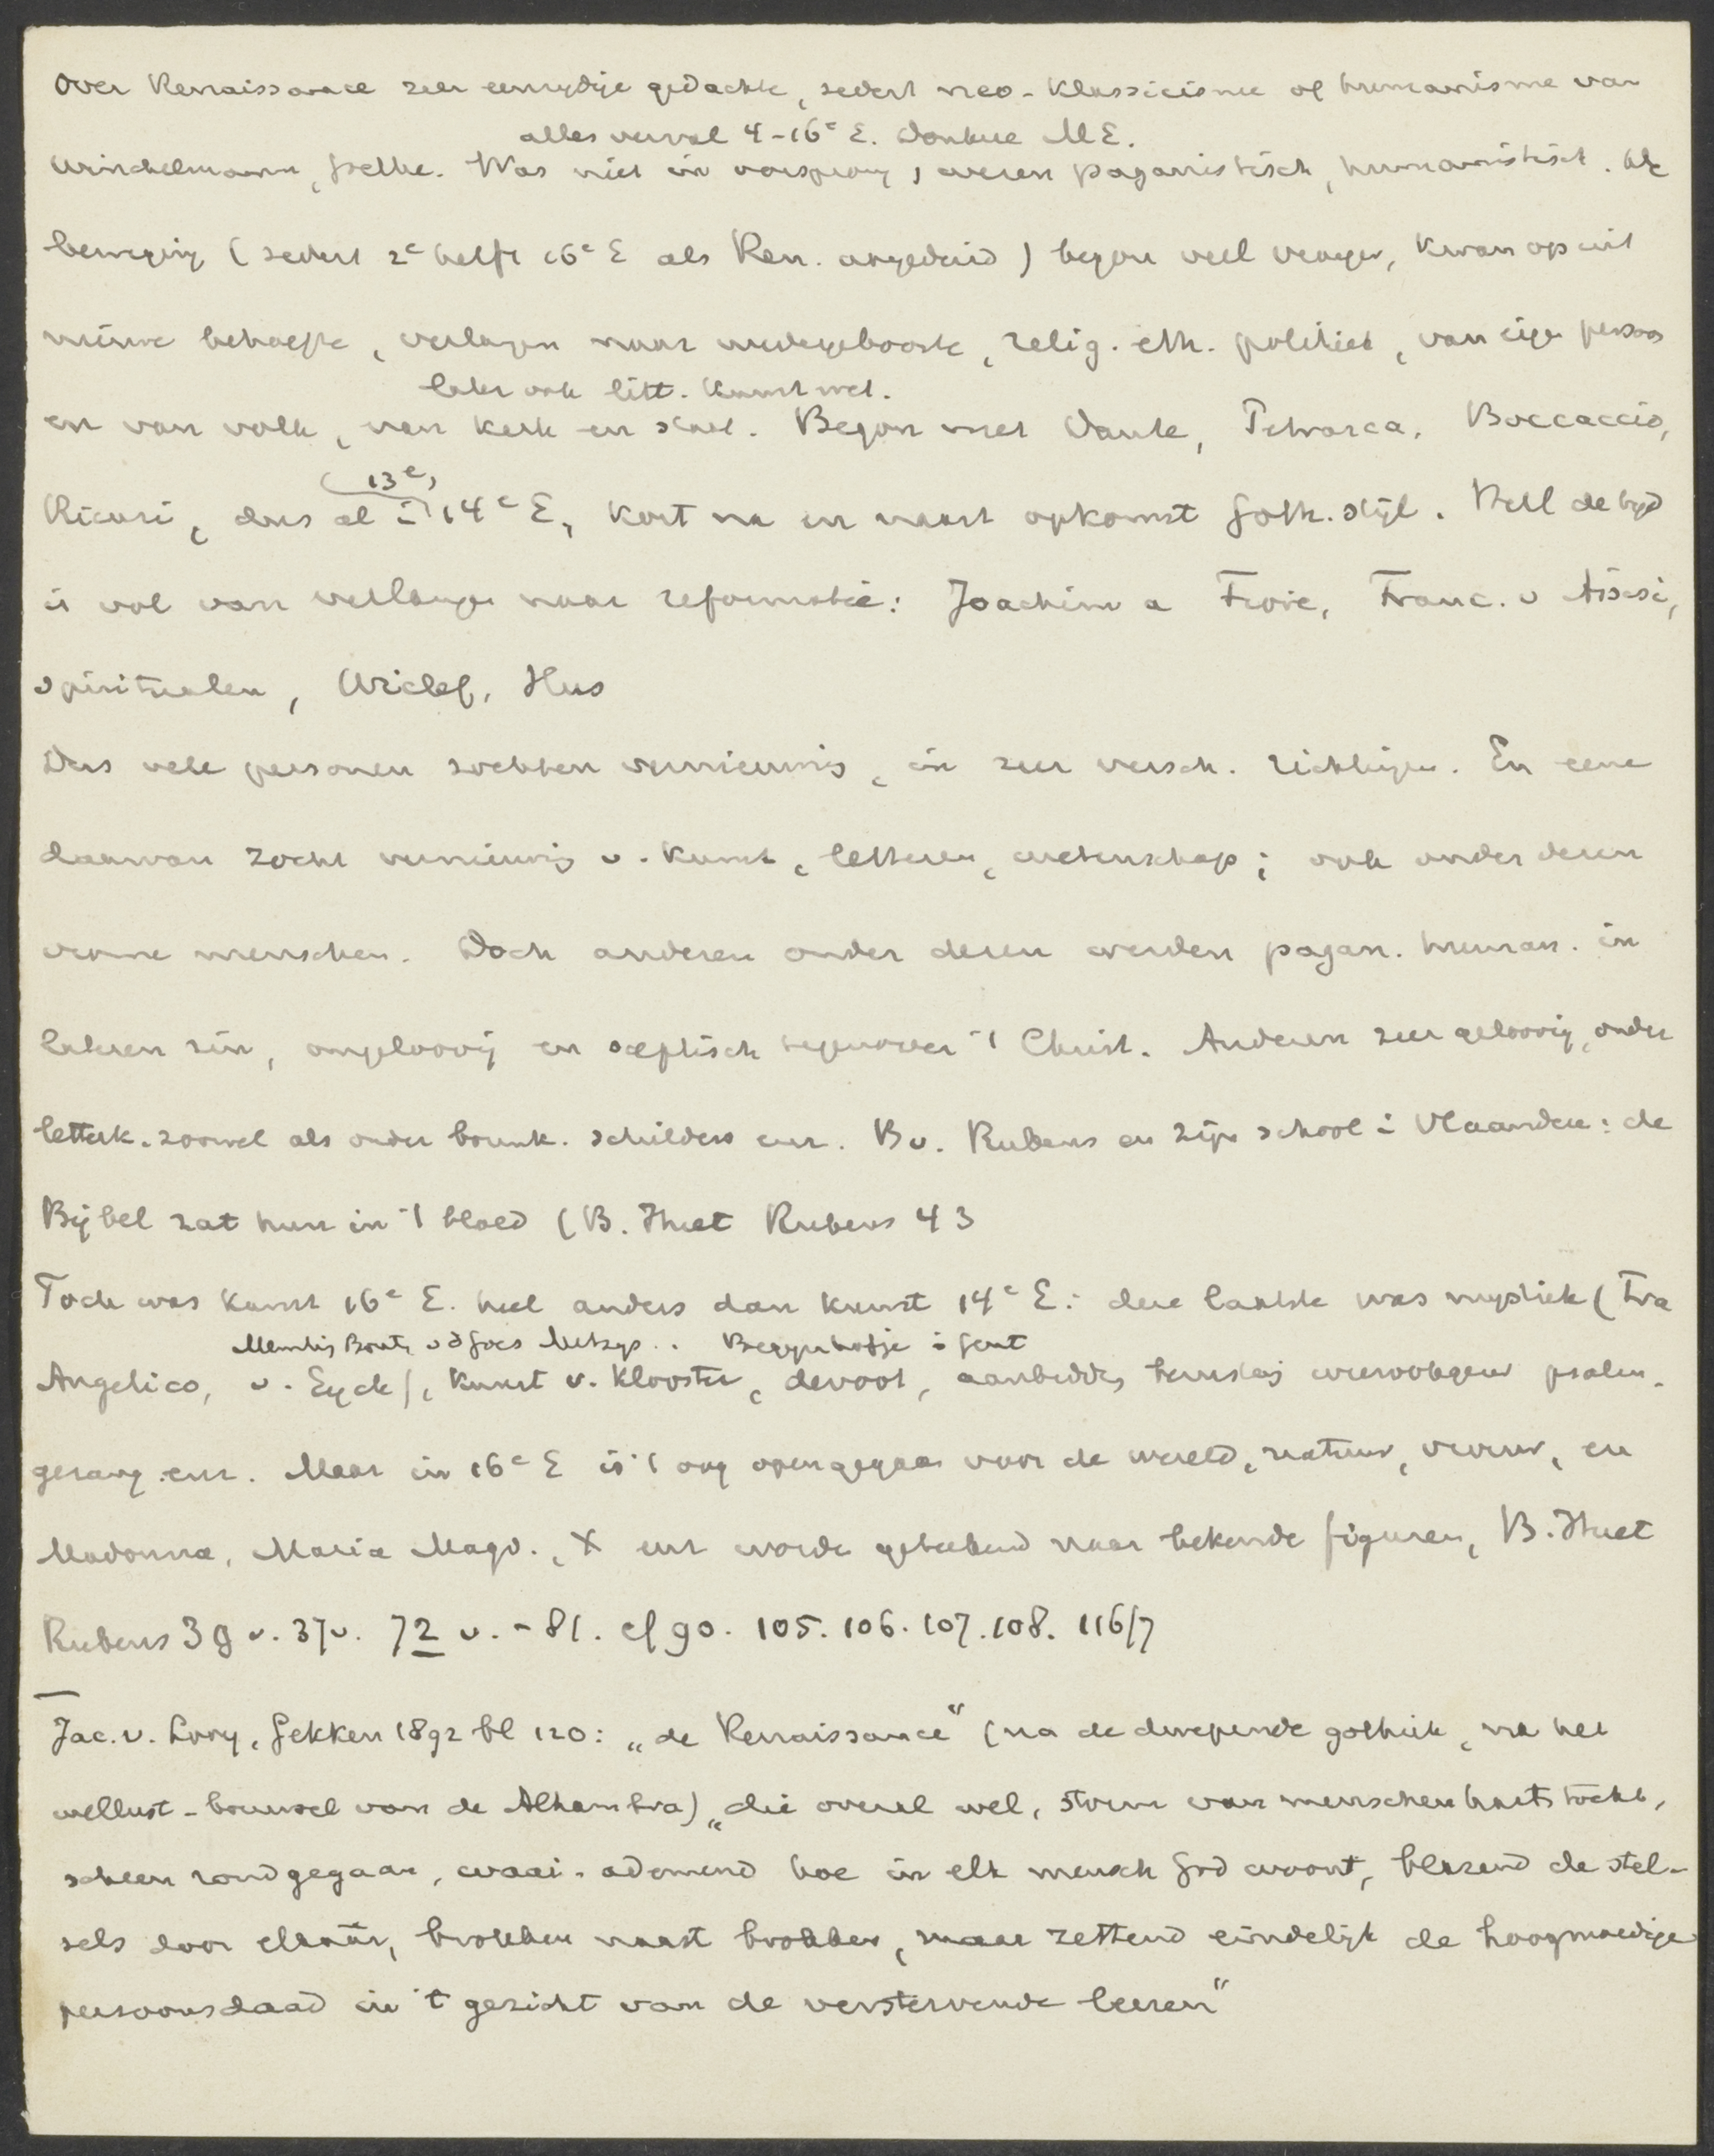 Over Renaissance zeer eenzydige gedachte, sedert neo-klassicisme of humanisme van
alles verval 4-16e E. donkere M E.
Winckelmann, Goethe. Was niet in oorsprong, wezen paganistisch, humanistisch. De
beweging (sedert 2e helft 16e E als Ren. aangeduid) begon veel vroeger, kwam op uit
nieuwe behoefte, verlangen naar wedergeboorte, relig. eth. politiek, van eigen persoon
later ook litt. kunst wet.
en van volk, van kerk en staat. Begon met Dante, Petrarca, Boccaccio,
(13e)
Rienzi, dus al in 14e E, kort na en naast opkomst Goth. stijl. Heel de tyd
is vol van verlangen naar reformatie: Joachim a Fiore, Franc. v Assisi,
spiritualen, Wiclef, Hus
Dus vele personen zochten vernieuwing, in zeer versch. richtingen. En eene
daarvan zocht vernieuwing v. kunst, letteren, wetenschap; ook onder dezen
vrome menschen. Doch anderen onder dezen werden pagan. human. in
lateren zin, ongeloovig en sceptisch tegenover 't Christ. Anderen zeer geloovig, onder
letterk. zoowel als onder bouwk. schilders enz. Bv. Rubens en zijn school in Vlaanderen: de
Bijbel zat hun in 't bloed (B. Huet Rubens 43
Toch was kunst 16e E. heel anders dan kunst 14e E: deze laatste was mystiek (Fra
Memling Bouts vd Goes Metsys .. Beggynhofje in Gent
Angelico, v. Eyck), kunst v. klooster, devoot, aanbidding wierookgeur psalm-
gezang enz. Maar in 16e E is 't oog opengegaan voor de wereld, natuur, vrouw, en
Madonna, Maria Magd., X enz worden geteekend naar bekende figuren, B. Huet
Rubens 39 v. 37v. 72 v. - 81. cf 90. 105. 106. 107. 108. 116/7
Jac. v. Looy, Gekken 1892 bl 120: „de Renaissance" (na de dweepende gothiek, na het
wellust-bouwsel van de Alhambra) „die overal wel, storm van menschenhartstocht,
scheen rondgegaan, waai-ademend hoe in elk mensch God woont, blazend de stel-
sels door elkaâr, brokken naast brokken, maar zettend eindelijk de hoogmoedige
persoonsdaad in 't gezicht van de verstervende leeren"